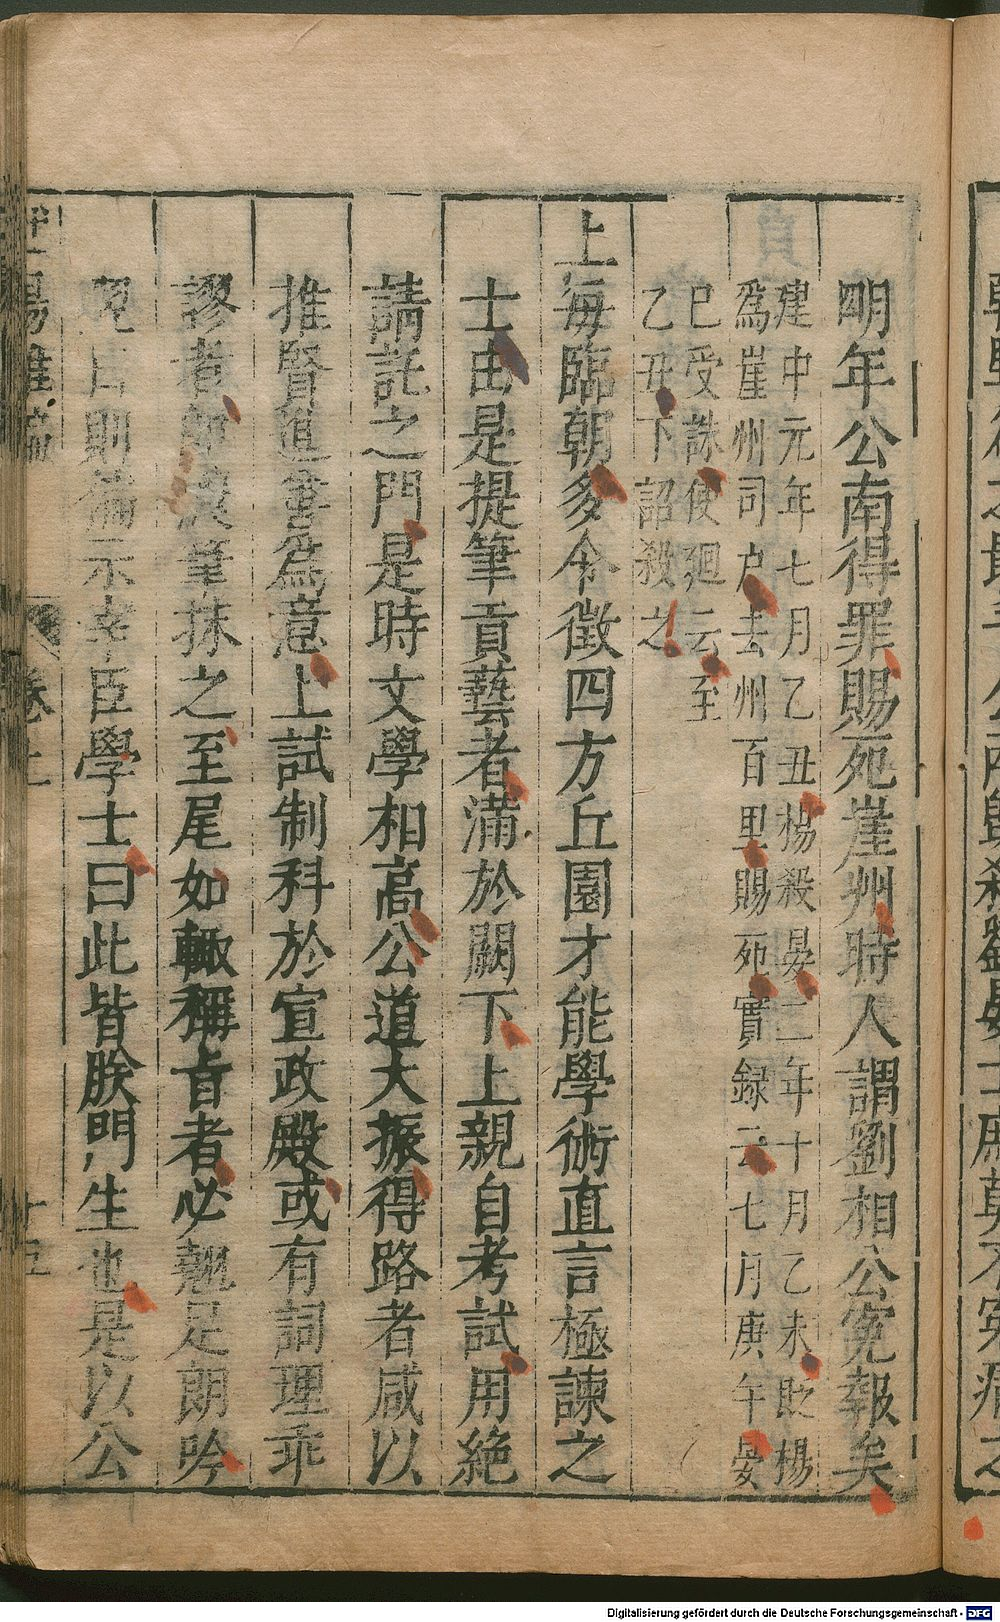 明年公南得罪賜死崖州時人謂劉相公寃報矣
建中元年七月乙丑楊殺晏二年十月乙未貶楊
爲崖州司户去州百里賜死實録云七月庚午晏
已受誅使廻云至
乙丑下詔殺之
上每臨朝多令徵四方丘園才能學術直言極諫之
士由是提筆貢藝者滿於闕下上親自考試用絶
請託之門是時文學相高公道大振得路者咸以
推賢進善爲意上試制科於宣政殿或有詞理乖
謬者即濃筆抹之至尾如輒稱旨者必翹足朗吟
翌日則徧示宰臣學士曰此皆朕門生也是以公
卷上
十五